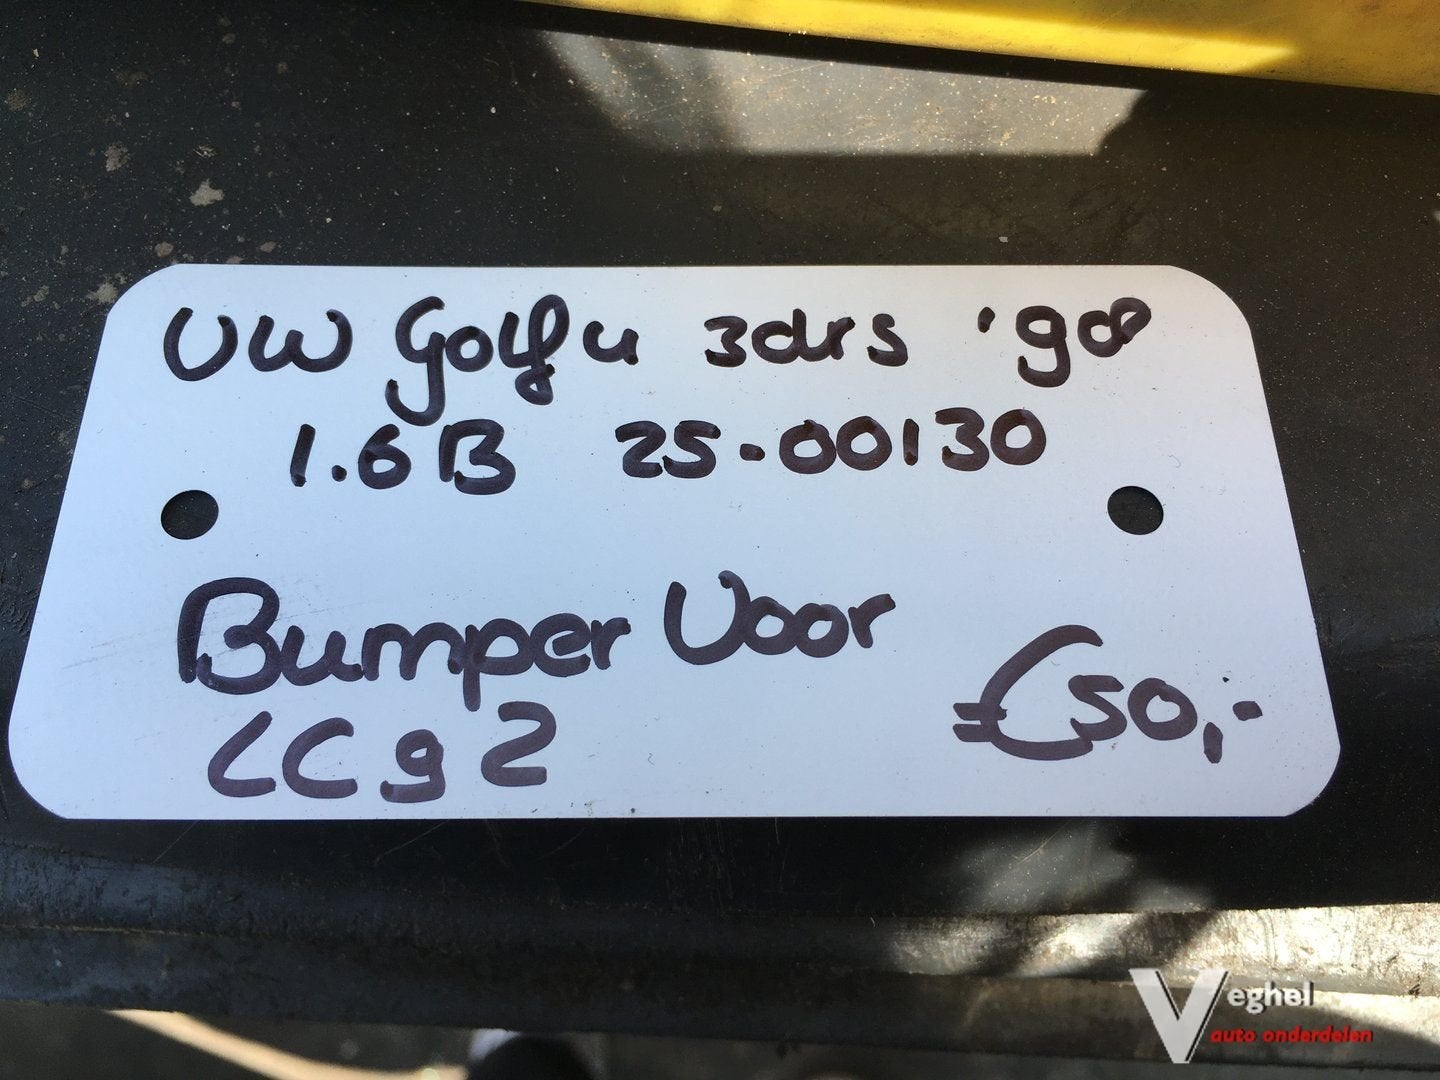 VW Golf 4 3drs '98
1.6B 25-00130
Bumper Voor
LC9Z
€50,-
Veghel
auto onderdelen